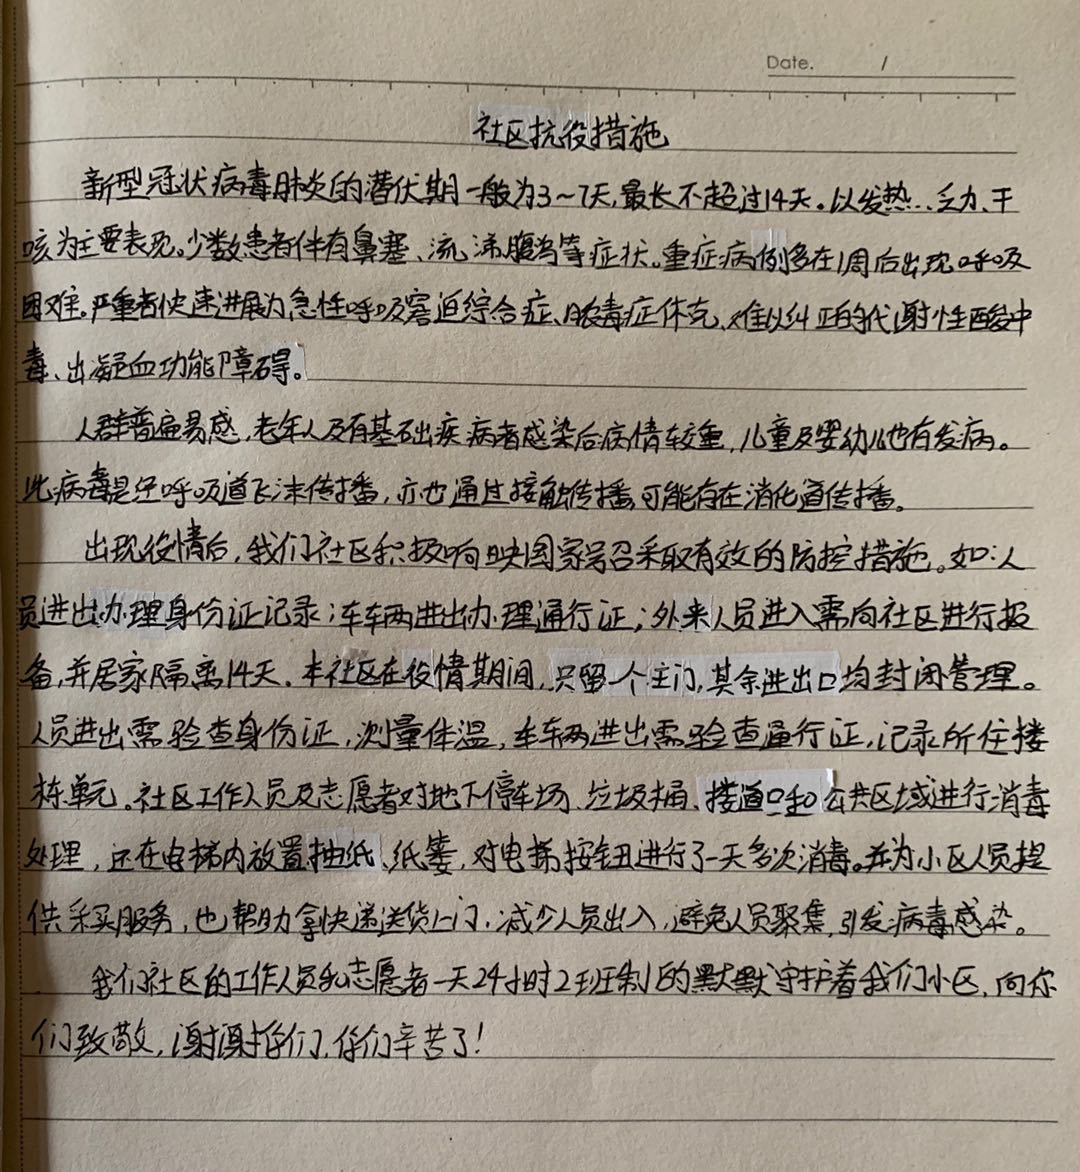 Date. /
社区抗役措施
新型冠状病毒肺炎的潜伏期一般为3~7天,最长不超过14天。以发热..乏力、干
咳为主要表现。少数患者伴有鼻塞、流涕腹泻等症状。重症病例多在1周后出现呼吸
困难。严重者快速进展为急性呼吸窘迫综合症、脓毒症休克、难以纠正的代谢性酸中
毒、出凝血功能障碍。
人群普遍易感,老年人及有基础疾病者感染后病情较重,儿童及婴幼儿也有发病。
此病毒是经呼吸道飞沫传播,亦也通过接触传播,可能存在消化道传播。
出现役情后,我们社区积极响映国家号召采取有效的防控措施。如:人
员进出办理身份证记录;车车两进出办理通行证;外来人员进入需向社区进行报
备,并居家隔离14天。本社区在役情期间,只留一个主门,其余进出口均封闭管理。
人员进出需验查身份证,测量体温,车车两进出需验查通行证,记录所住楼
栋单元。社区工作人员及志愿者对地下停车场、垃圾桶、楼道口和公共区域进行消毒
处理,还在电梯内放置抽纸、纸篓,对电梯按钮进行了一天多次消毒。并为小区人员提
供采买服务,也帮助拿快递送货上门,减少人员出入,避免人员聚集,引发病毒感染。
我们社区的工作人员和志愿者一天24小时2班制的默默守护着我们小区,向你
们致敬,谢谢你们,你们辛苦了!